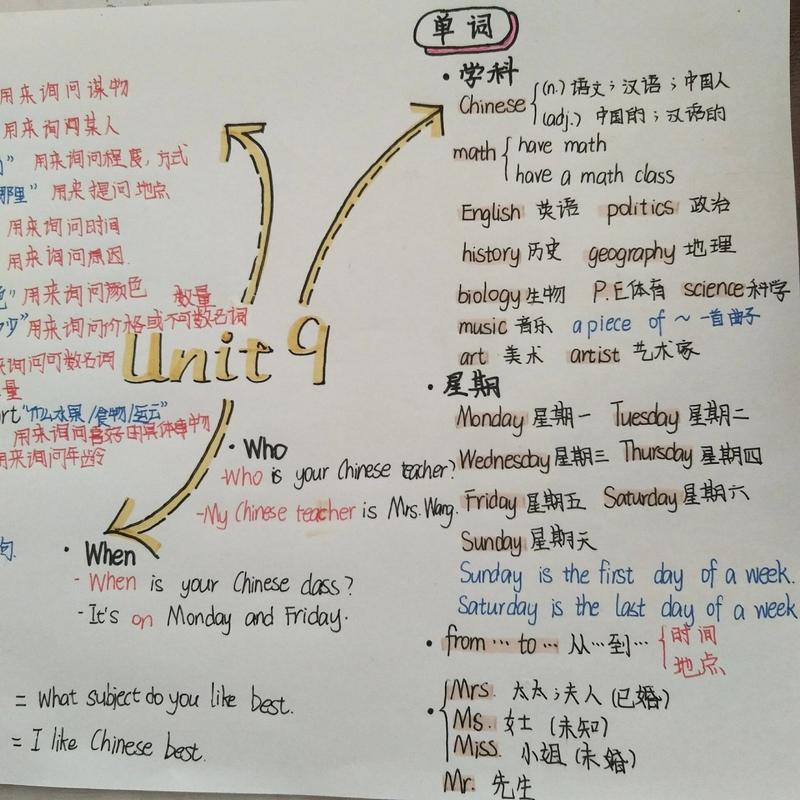 用来询问谋物
用来询问某人
用来询问程度,方式
那里" 用来提问地点
用来询问时间
用来询问原因.
用来询问颜色
数量
用来询问价格或不可数名词
询问可数名词
量
"什么水果/食物/运云"
用来询问喜好的具体事物
用来询问年龄
Unit 9
· Who
-Who is your Chinese teacher?
-My Chinese teacher is Mrs. Wang.
· When
- When is your Chinese class?
- It's on Monday and Friday.
= What subject do you like best.
= I like Chinese best.
单词
· 学科
Chinese { (n.) 语文;汉语;中国人
(adj.) 中国的;汉语的
math { have math
have a math class
English 英语 politics 政治
history 历史 geography 地理
biology 生物 P.E 体育 science 科学
music 音乐 a piece of ~ 一首曲子
art 美术 artist 艺术家
· 星期
Monday 星期一 Tuesday 星期二
Wednesday 星期三 Thursday 星期四
Friday 星期五 Saturday 星期六
Sunday 星期天
Sunday is the first day of a week.
Saturday is the last day of a week
· from … to … 从…到… { 时间
地点
· { Mrs. 太太;夫人 (已婚)
Ms. 女士 (未知)
Miss. 小姐 (未婚)
Mr. 先生